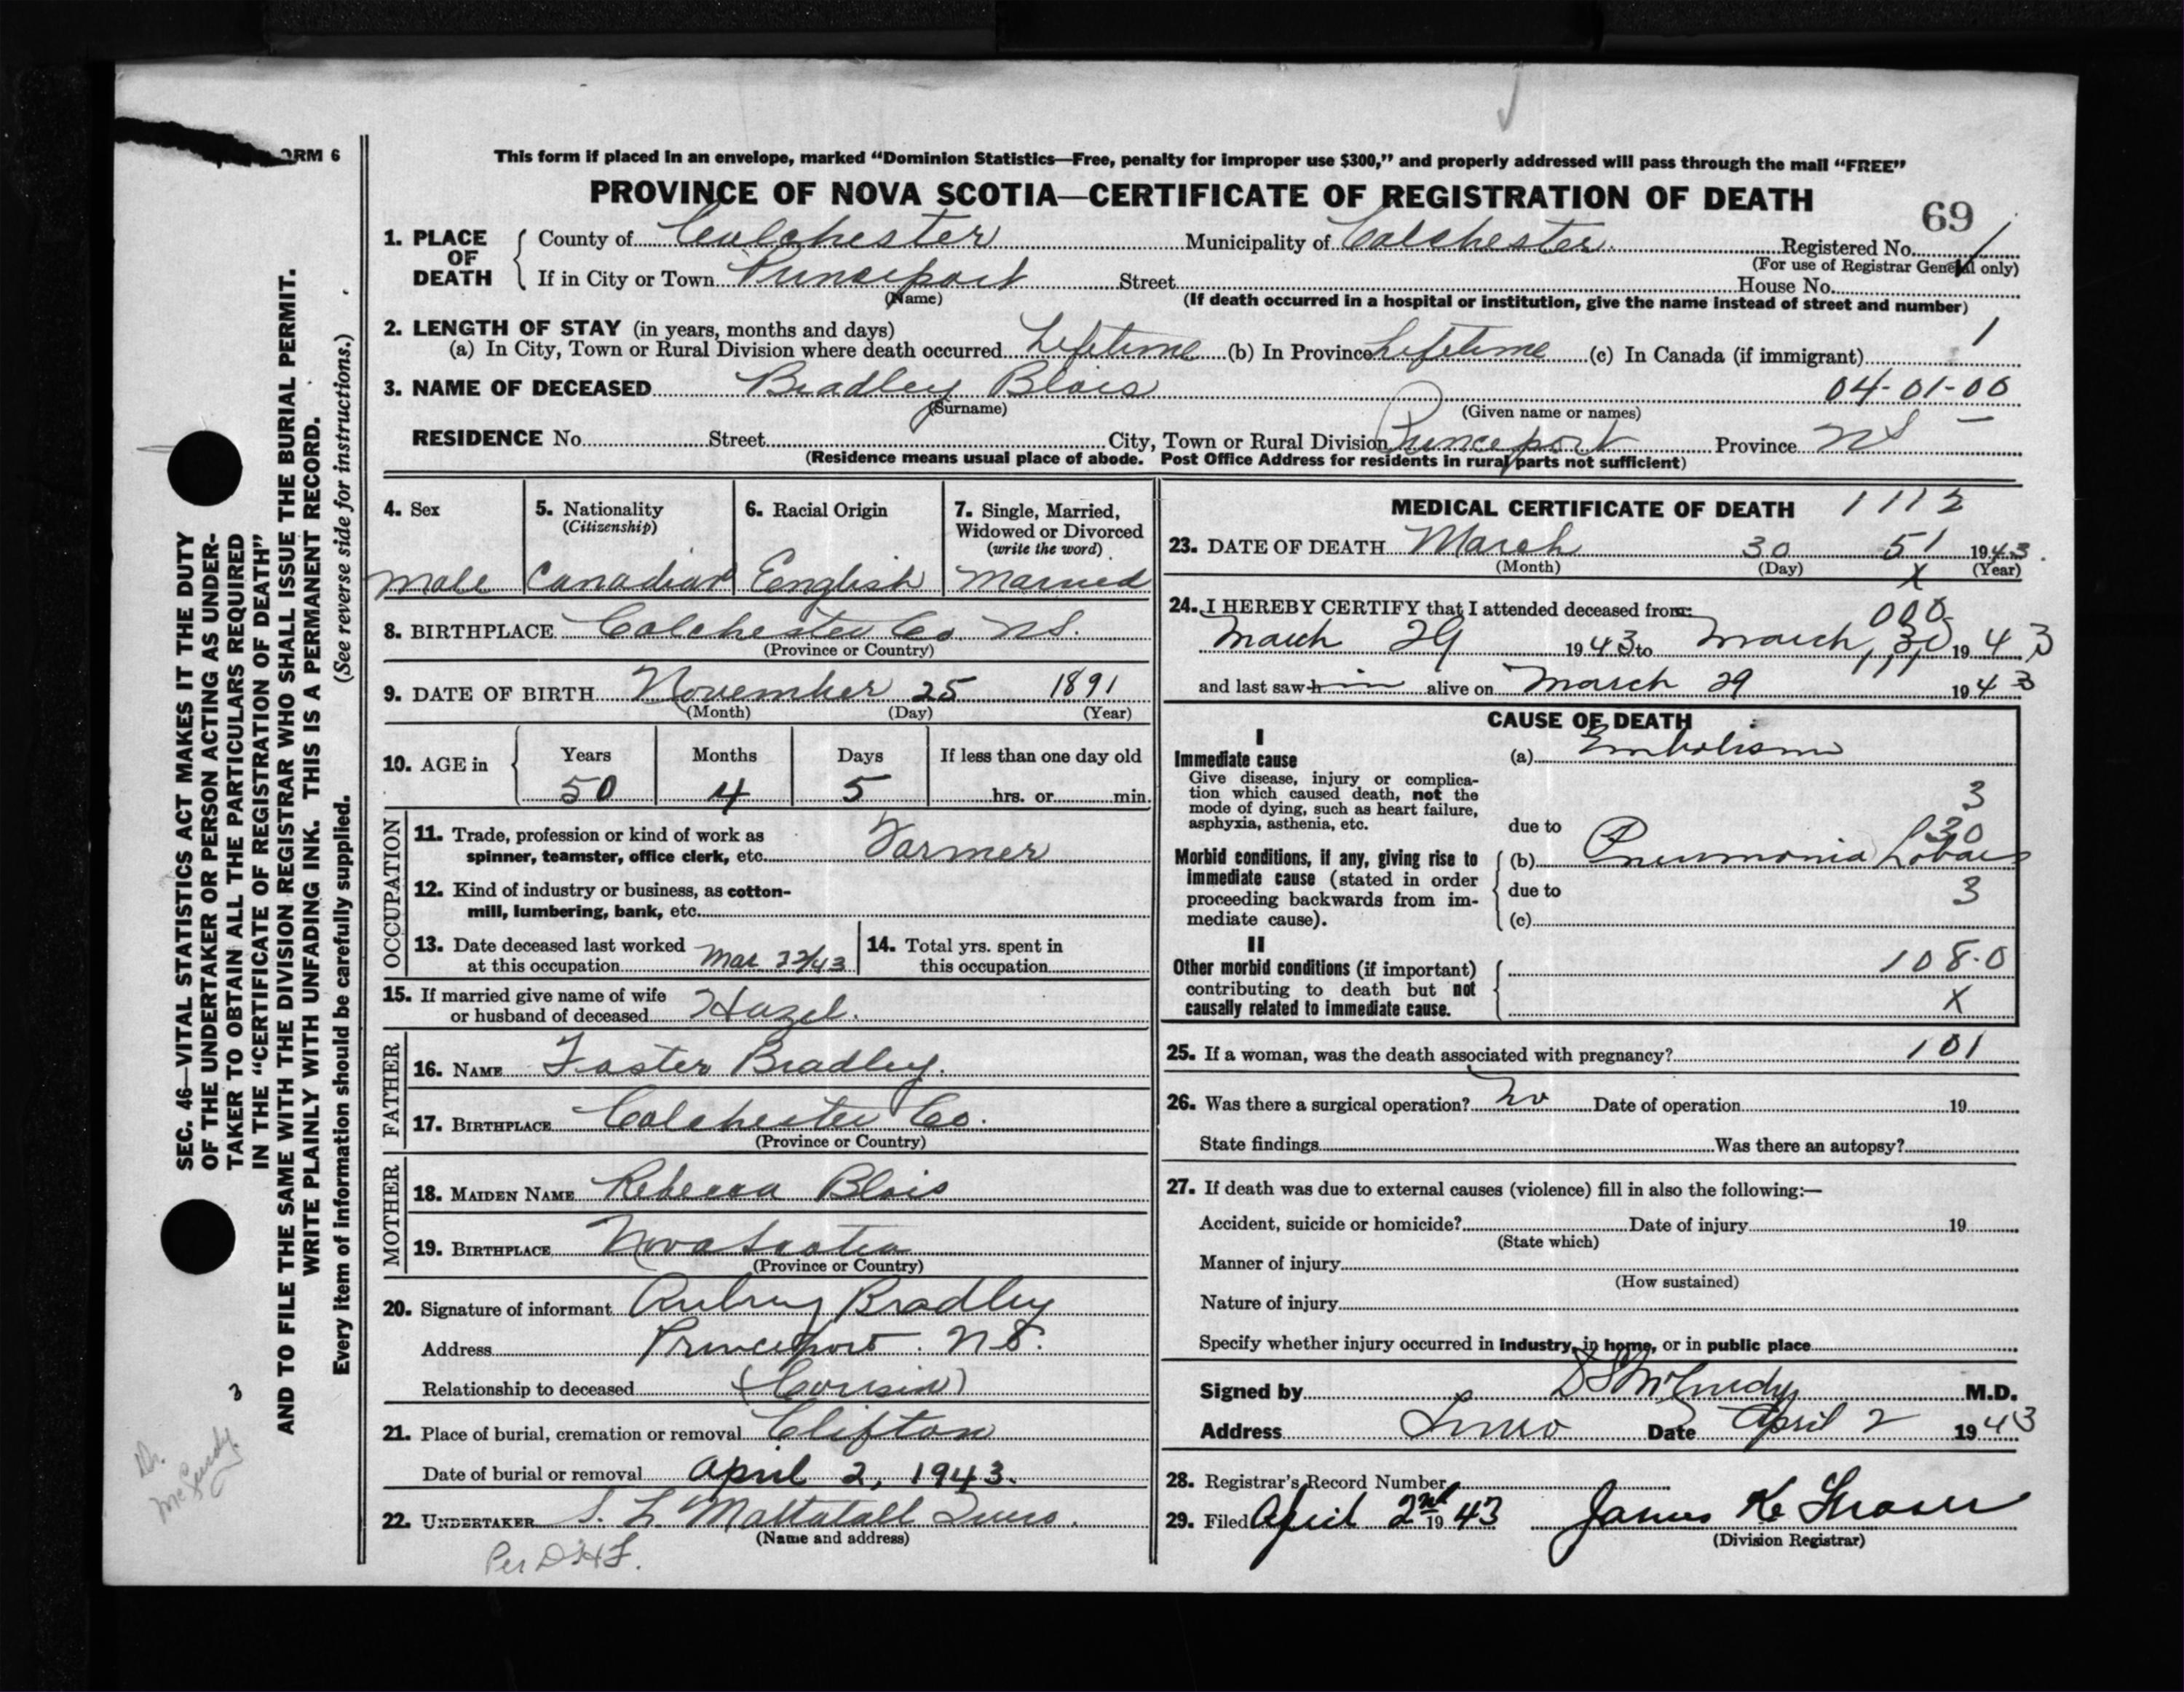 FORM 6
This form if placed in an envelope, marked “Dominion Statistics—Free, penalty for improper use $300,” and properly addressed will pass through the mail “FREE”
PROVINCE OF NOVA SCOTIA—CERTIFICATE OF REGISTRATION OF DEATH
69
1. PLACE OF DEATH
County of Colchester Municipality of Colchester Registered No.
(For use of Registrar General only)
If in City or Town Princeport Street House No.
(Name) (If death occurred in a hospital or institution, give the name instead of street and number)
2. LENGTH OF STAY (in years, months and days) 1
(a) In City, Town or Rural Division where death occurred Lifetime (b) In Province Lifetime (c) In Canada (if immigrant)
3. NAME OF DECEASED Bradley Blois 04-01-00
(Surname) (Given name or names)
RESIDENCE No. Street City, Town or Rural Division Princeport Province NS
(Residence means usual place of abode. Post Office Address for residents in rural parts not sufficient)
4. Sex 5. Nationality 6. Racial Origin 7. Single, Married,
(Citizenship) Widowed or Divorced
(write the word)
Male Canadian English Married
8. BIRTHPLACE Colchester Co. NS.
(Province or Country)
9. DATE OF BIRTH November 25 1891
(Month) (Day) (Year)
10. AGE in Years Months Days If less than one day old
50 4 5 hrs. or min.
OCCUPATION
11. Trade, profession or kind of work as
spinner, teamster, office clerk, etc. Farmer
12. Kind of industry or business, as cotton-
mill, lumbering, bank, etc.
13. Date deceased last worked 14. Total yrs. spent in
at this occupation Mar 22/43 this occupation
15. If married give name of wife
or husband of deceased Hazel.
FATHER
16. NAME Foster Bradley.
17. BIRTHPLACE Colchester Co.
(Province or Country)
MOTHER
18. MAIDEN NAME Rebecca Blois
19. BIRTHPLACE Nova Scotia
(Province or Country)
20. Signature of informant Aubrey Bradley
Address Princeport. N.S.
Relationship to deceased (Cousin)
21. Place of burial, cremation or removal Clifton
Date of burial or removal April 2, 1943.
22. UNDERTAKER S. L. Mattatall Truro.
(Name and address)
Per DHF.
MEDICAL CERTIFICATE OF DEATH 1112
23. DATE OF DEATH March 30 51 1943.
(Month) (Day) X (Year)
24. I HEREBY CERTIFY that I attended deceased from: 000
March 29 1943 to March 30 1943
and last saw him alive on March 29 1943
CAUSE OF DEATH
I
Immediate cause (a) Embolism
Give disease, injury or complica-
tion which caused death, not the 3
mode of dying, such as heart failure,
asphyxia, asthenia, etc. due to 30
Morbid conditions, if any, giving rise to (b) Pneumonia Lobar
immediate cause (stated in order due to 3
proceeding backwards from im-
mediate cause). (c)
II
Other morbid conditions (if important) 108.0
contributing to death but not
causally related to immediate cause. X
25. If a woman, was the death associated with pregnancy? 101
26. Was there a surgical operation? No Date of operation 19
State findings Was there an autopsy?
27. If death was due to external causes (violence) fill in also the following:—
Accident, suicide or homicide? Date of injury 19
(State which)
Manner of injury
(How sustained)
Nature of injury
Specify whether injury occurred in industry, in home, or in public place
Signed by D S McCurdy M.D.
Address Truro Date April 2 1943
28. Registrar's Record Number
29. Filed April 2nd 1943 James K. Fraser
(Division Registrar)
SEC. 46—VITAL STATISTICS ACT MAKES IT THE DUTY
OF THE UNDERTAKER OR PERSON ACTING AS UNDER-
TAKER TO OBTAIN ALL THE PARTICULARS REQUIRED
IN THE “CERTIFICATE OF REGISTRATION OF DEATH”
AND TO FILE THE SAME WITH THE DIVISION REGISTRAR WHO SHALL ISSUE THE BURIAL PERMIT.
WRITE PLAINLY WITH UNFADING INK. THIS IS A PERMANENT RECORD.
Every item of information should be carefully supplied. (See reverse side for instructions.)
Dr. McCurdy
3